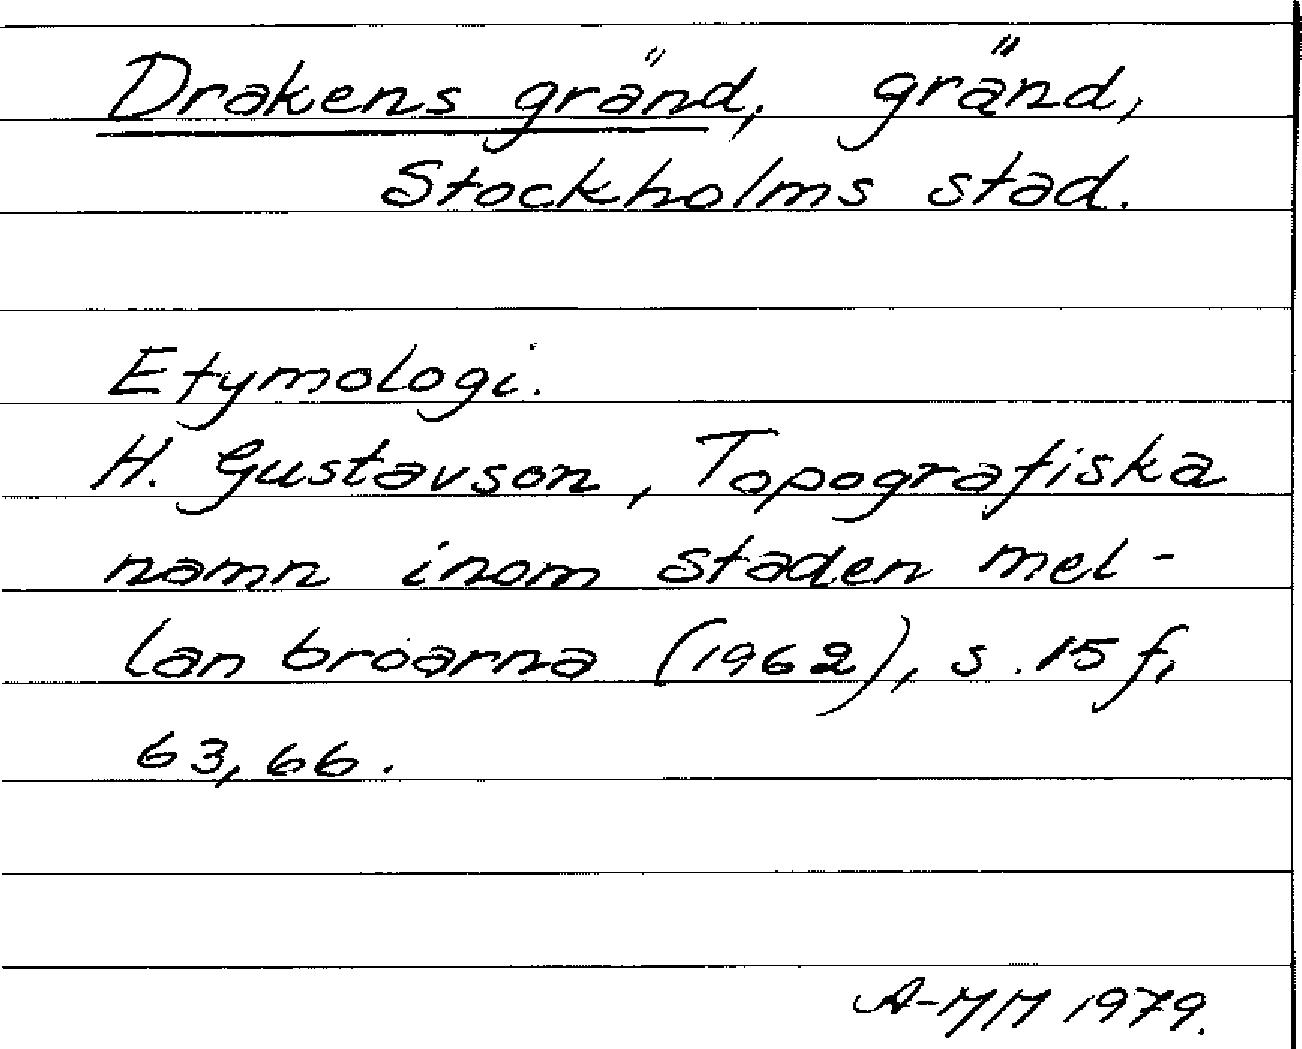 Drakens gränd, gränd,
Stockholms stad.
Etymologi.
H. Gustavson, Topografiska
namn inom staden mel-
lan broarna (1962), s. 15 f,
63, 66.
A-MM 1979.